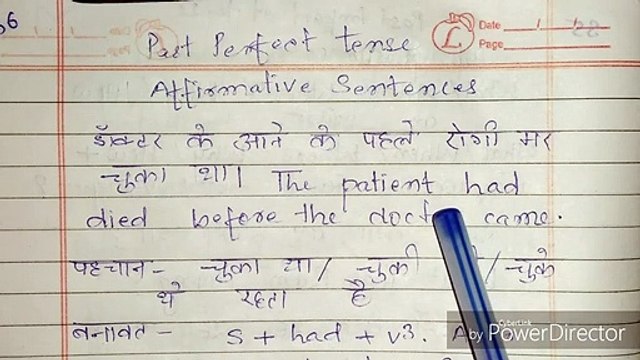 36
Date
Page
Past Perfect tense
Affirmative Sentences
डॉक्टर के आने के पहले रोगी मर
चुका था। The patient had
died before the doct came.
पहचान - चुका था / चुकी / चुके
थे रहता है
बनावट - S + had + v3. A
by CyberLink PowerDirector